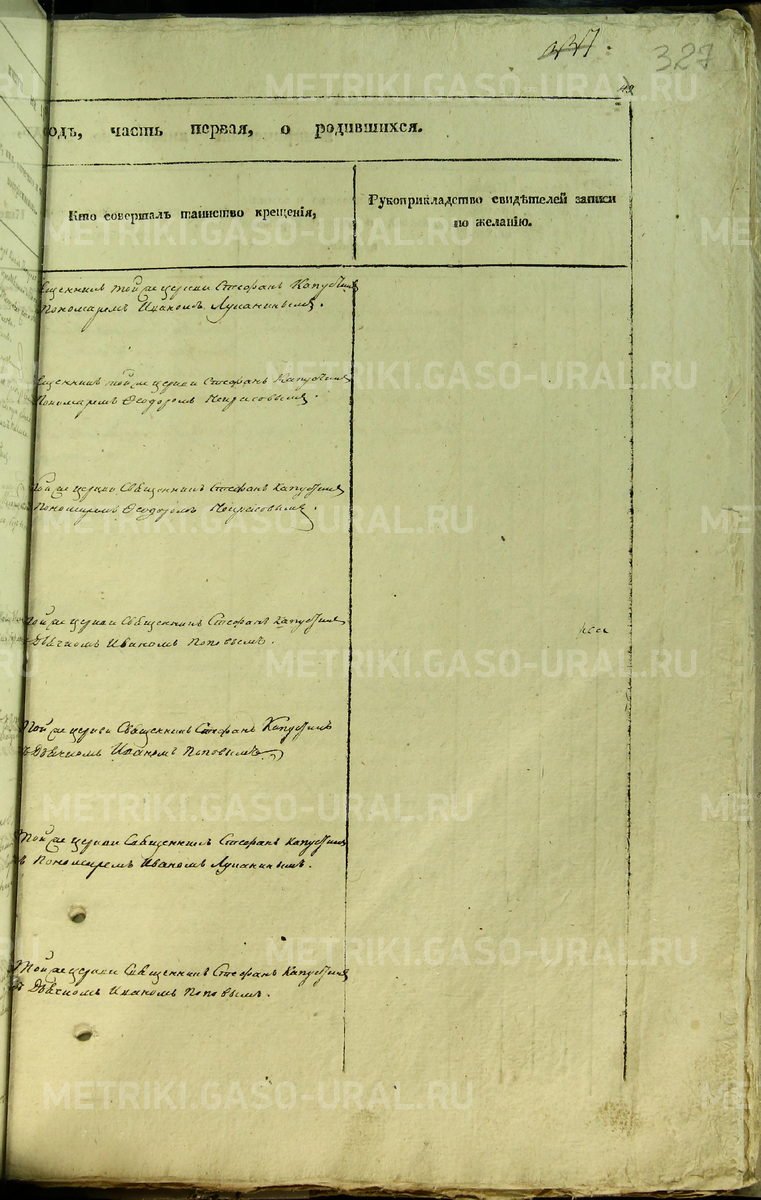 237.
327
одъ, часть первая, о родившихся.
Кто совершалъ таинство крещенія,
Рукоприкладство свидѣтелей записи
по желанію.
щенникъ той же церкви Стефанъ Капустинъ
Пономаремъ Иваномъ Лукинымъ.
щенникъ той же церкви Стефанъ Капустинъ
Пономаремъ Феодоромъ Некрасовымъ.
Той же церкви Священникъ Стефанъ Капустинъ
Пономаремъ Феодоромъ Некрасовымъ.
Той же церкви Священникъ Стефанъ Капустинъ
Дьячкомъ Иваномъ Поповымъ.
Той же церкви Священникъ Стефанъ Капустинъ
съ Дьячкомъ Иваномъ Поповымъ.
Той же церкви Священникъ Стефанъ Капустинъ
съ Пономаремъ Иваномъ
Той же церкви Священникъ Стефанъ Капустинъ
съ Дьячкомъ Иваномъ Поповымъ.
METRIKI.GASO-URAL.RU